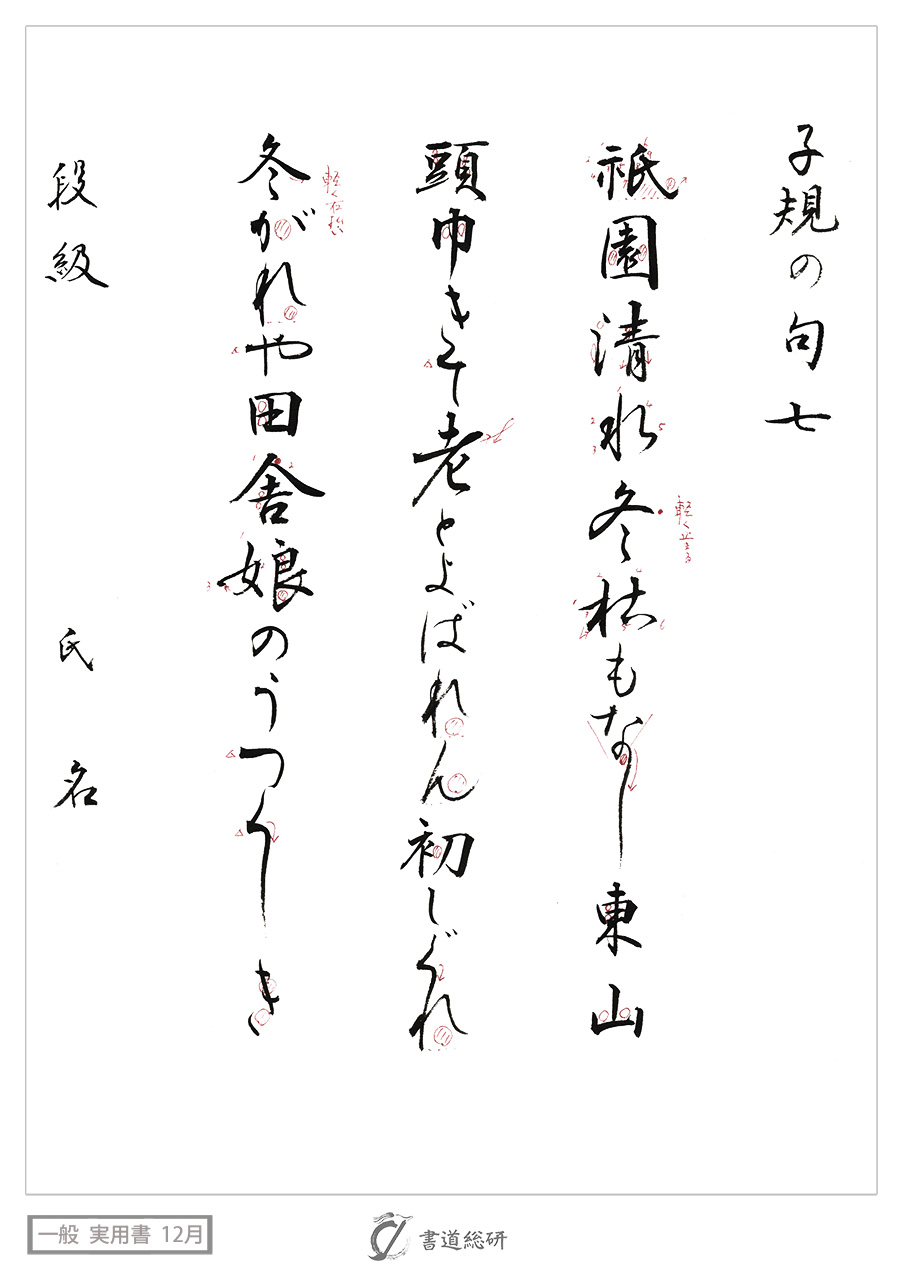 子規の句七
祇園清水冬枯もなし東山
軽く止まる
頭巾きて老とよばれん初しぐれ
冬がれや田舎娘のうつくしき
軽く右払い
段級 氏名
一般 実用書 12月
書道総研